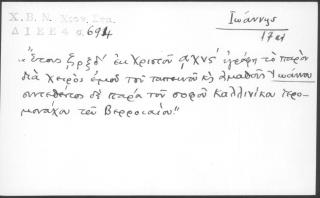 Χ.Β.Ν. Χιον. Σπα.
Δ Ι Ε Ε 4 σ. 694
Ἰωάννης
17
"Ἔτους ἐκ Χριστοῦ ͵αχνς' ἐγράφη τὸ παρὸν
διὰ χειρὸς ἐμοῦ τοῦ ταπεινοῦ κὲ ἀμαθοῦς Ἰωάννου
συντεθέντος δὲ παρὰ τοῦ σοφοῦ Καλλινίκου ἱερο-
μονάχου τοῦ Βερροιαίου"